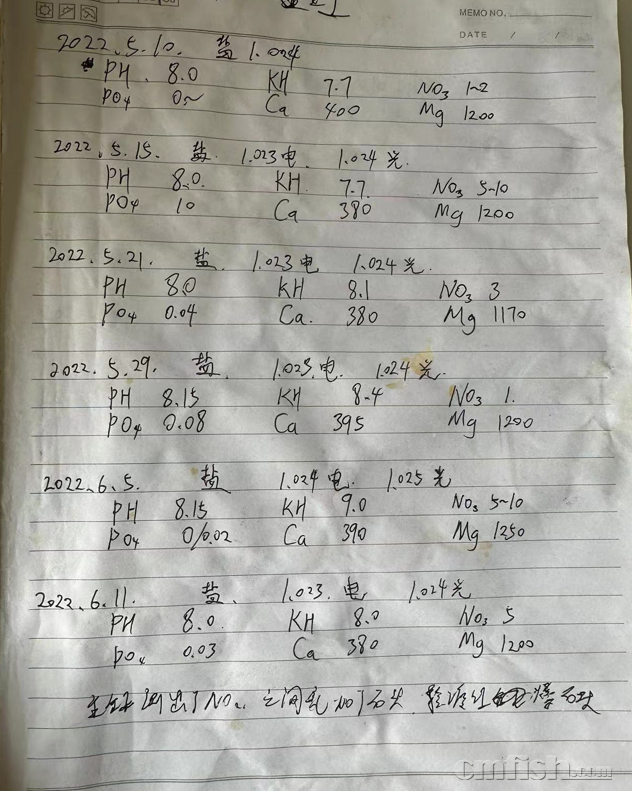 MEMO NO.
DATE / /
2022.5.10. 盐 1.024
PH. 8.0 KH 7.7 NO3 1~2
PO4 0~ Ca 400 Mg 1200
2022.5.15. 盐. 1.023电. 1.024光.
PH 8.0. KH 7.7. NO3 5-10
PO4 10 Ca 380 Mg 1200
2022.5.21. 盐. 1.023电 1.024光.
PH 8.0 KH 8.1 NO3 3
PO4 0.04 Ca. 380 Mg 1170
2022.5.29. 盐. 1.023.电. 1.024光.
PH 8.15 KH 8.4 NO3 1.
PO4 0.08 Ca 395 Mg 1200
2022.6.5. 盐 1.024电. 1.025光
PH 8.15 KH 9.0 NO3 5~10
PO4 0/0.02 Ca 390 Mg 1250
2022.6.11. 盐. 1.023.电 1.024光
PH 8.0. KH 8.0 NO3 5
PO4 0.03 Ca 380 Mg 1200
测出了NO 之间 加了石头
cmfish.com